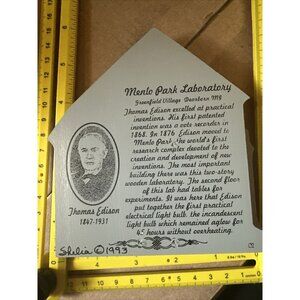 Menlo Park Laboratory
Greenfield Village Dearborn MI
Thomas Edison excelled at practical
inventions. His first patented
invention was a vote recorder in
1868. In 1876 Edison moved to
Menlo Park, the world's first
research complex devoted to the
creation and development of new
inventions. The most important
building there was this two-story
wooden laboratory. The second floor
of this lab had tables for
experiments. It was here that Edison
put together the first practical
electrical light bulb. the incandescent
light bulb which remained aglow for
45 hours without overheating.
Thomas Edison
1847-1931
Shelia © 1993